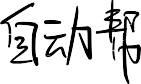 自动帮